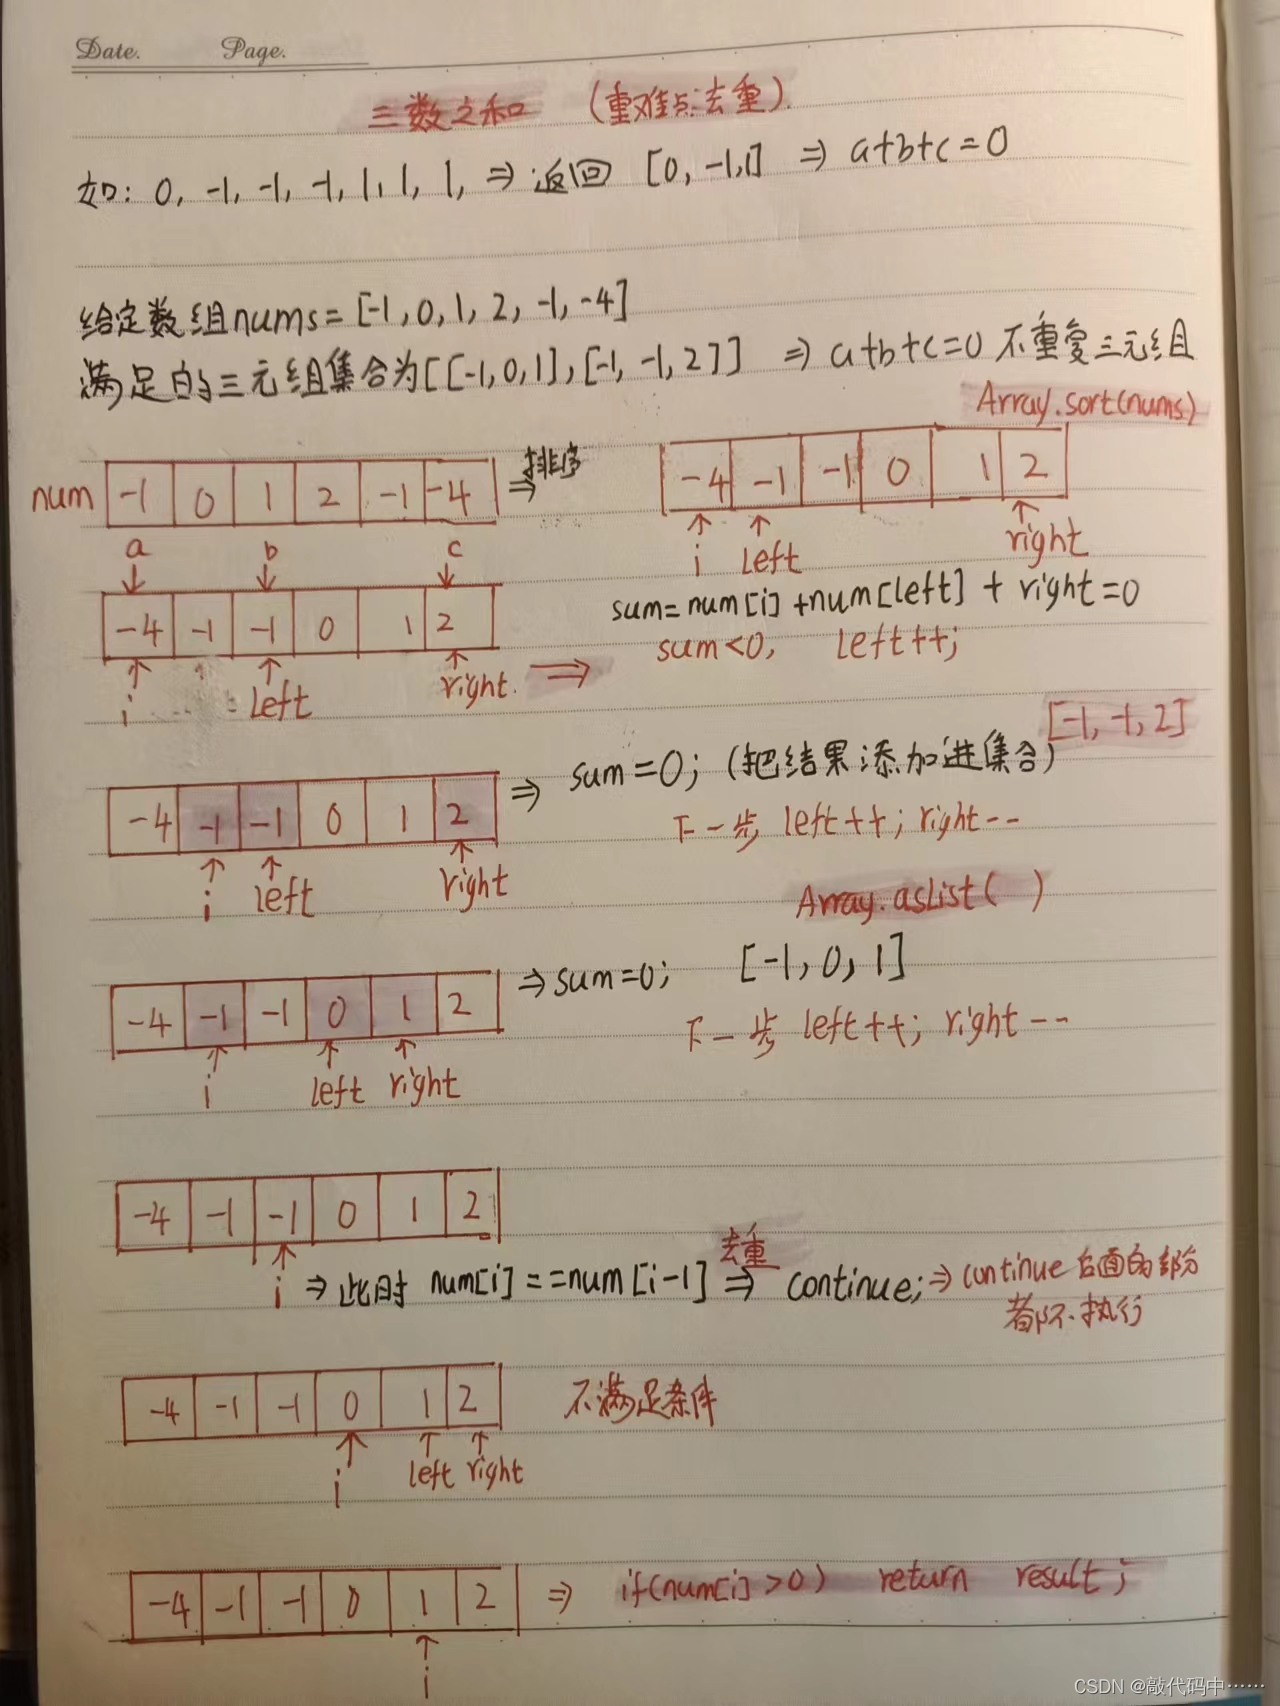 Date. Page.
三数之和 (重难点:去重).
如: 0, -1, -1, -1, 1, 1, 1, ⇒ 返回 [0, -1,1] ⇒ a+b+c=0
给定数组nums=[-1,0,1,2,-1,-4]
满足的三元组集合为[[-1,0,1],[-1,-1,2]] ⇒ a+b+c=0 不重复三元组
Array.sort(nums)
num -1 0 1 2 -1 -4 ⇒ 排序 -4 -1 -1 0 1 2
↑ ↑ ↑
i left right
a b c
↓ ↓ ↓
-4 -1 -1 0 1 2
sum=num[i]+num[left]+right=0
sum<0, left++;
↑ ↑ ↑
i left right. ⇒
[-1,-1,2]
-4 -1 -1 0 1 2 ⇒ sum=0; (把结果添加进集合)
下一步 left++; right--
↑ ↑ ↑
i left right
Array.asList( )
-4 -1 -1 0 1 2 ⇒ sum=0; [-1,0,1]
下一步 left++; right--
↑ ↑ ↑
i left right
-4 -1 -1 0 1 2
↑
去重
i ⇒ 此时 num[i]==num[i-1] ⇒ continue; ⇒ continue后面的部分
都不执行
-4 -1 -1 0 1 2 不满足条件
↑ ↑ ↑
i left right
-4 -1 -1 0 1 2 ⇒ if(num[i]>0) return result;
↑
i
CSDN @敲代码中……